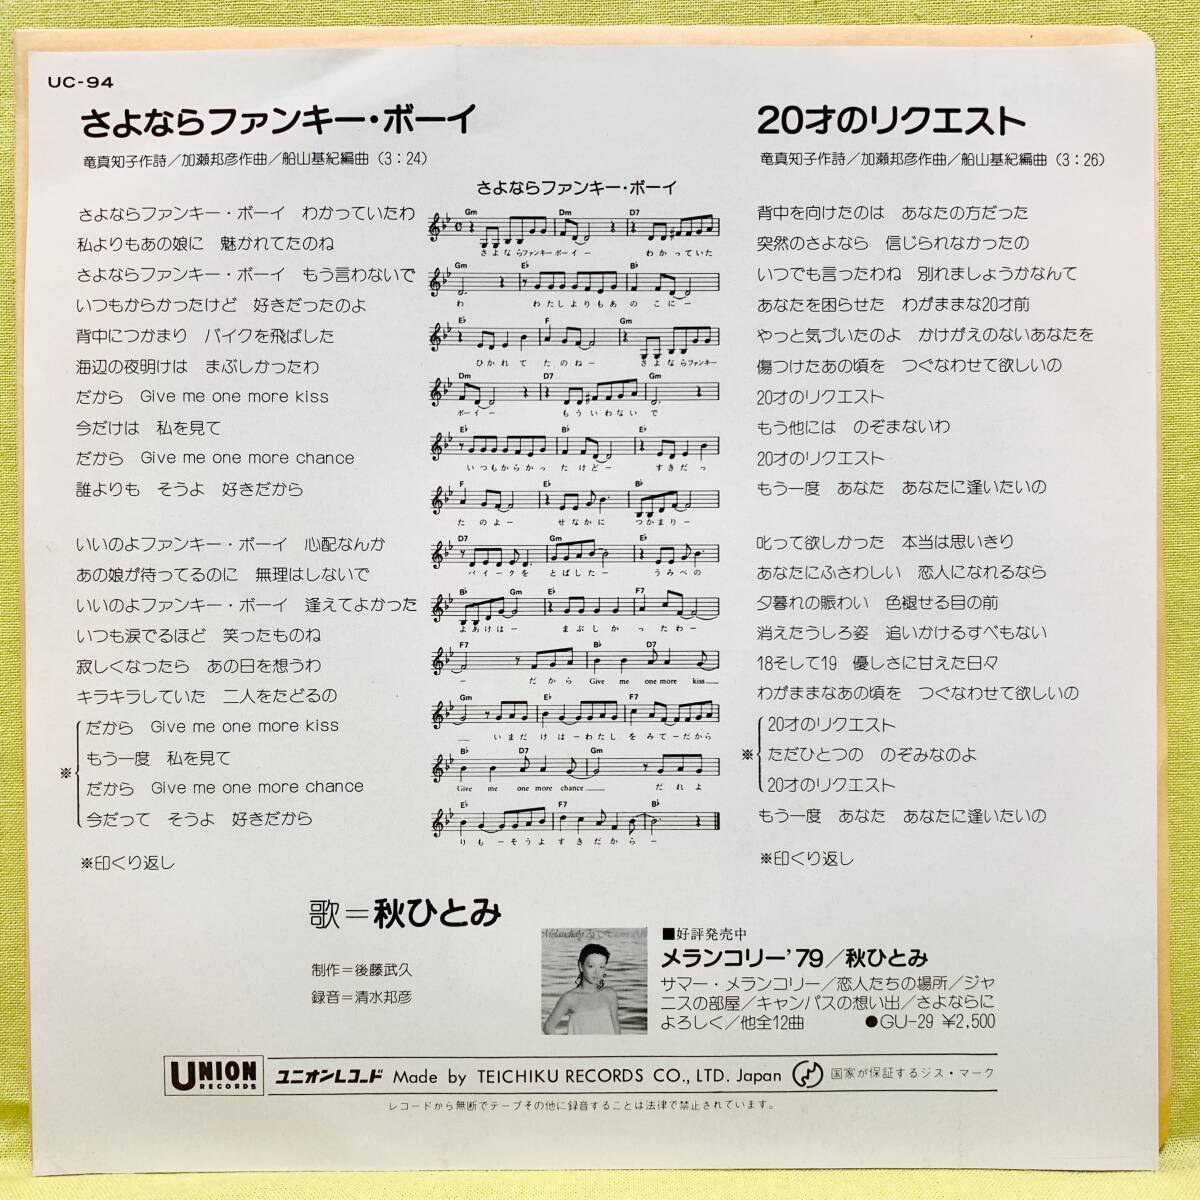 UC-94
さよならファンキー・ボーイ
竜真知子作詩／加瀬邦彦作曲／船山基紀編曲（3：24）
さよならファンキー・ボーイ　わかっていたわ
私よりもあの娘に　魅かれてたのね
さよならファンキー・ボーイ　もう言わないで
いつもからかったけど　好きだったのよ
背中につかまり　バイクを飛ばした
海辺の夜明けは　まぶしかったわ
だから　Give me one more kiss
今だけは　私を見て
だから　Give me one more chance
誰よりも　そうよ　好きだから
いいのよファンキー・ボーイ　心配なんか
あの娘が待ってるのに　無理はしないで
いいのよファンキー・ボーイ　逢えてよかった
いつも涙でるほど　笑ったものね
寂しくなったら　あの日を想うわ
キラキラしていた　二人をたどるの
だから　Give me one more kiss
もう一度　私を見て
※
だから　Give me one more chance
今だって　そうよ　好きだから
※印くり返し
さよならファンキー・ボーイ
Gm Dm D7
さよならファンキーボーイー わかっていた
Gm E♭ B♭
わ わたしよりもあのこにー
E♭ F Gm
ひかれてたのねー さよならファンキー
Dm D7 Gm
ボーイー もういわないで
E♭ B♭ E♭
いつもからかったけどー すきだっ
F E♭ B♭
たのよー せなかにつかまりー
D7 Gm B♭
バイークをとばしたー うみべの
B♭ Gm E♭ F7
よあけはー まぶしかったわー
F7 B♭ D7
ー だから Give me one more kiss
Gm E♭ C F7
いまだけはーわたしをみてーだから
B♭ D7 Gm
Give me one more chance だれよ
E♭ F7 B♭
りもーそうよすきだからー
20才のリクエスト
竜真知子作詩／加瀬邦彦作曲／船山基紀編曲（3：26）
背中を向けたのは　あなたの方だった
突然のさよなら　信じられなかったの
いつでも言ったわね　別れましょうかなんて
あなたを困らせた　わがままな20才前
やっと気づいたのよ　かけがえのないあなたを
傷つけたあの頃を　つぐなわせて欲しいの
20才のリクエスト
もう他には　のぞまないわ
20才のリクエスト
もう一度　あなた　あなたに逢いたいの
叱って欲しかった　本当は思いきり
あなたにふさわしい　恋人になれるなら
夕暮れの賑わい　色褪せる目の前
消えたうしろ姿　追いかけるすべもない
18そして19　優しさに甘えた日々
わがままなあの頃を　つぐなわせて欲しいの
20才のリクエスト
※ ただひとつの　のぞみなのよ
20才のリクエスト
もう一度　あなた　あなたに逢いたいの
※印くり返し
歌＝秋ひとみ
制作＝後藤武久
録音＝清水邦彦
■好評発売中
メランコリー'79／秋ひとみ
サマー・メランコリー／恋人たちの場所／ジャ
ニスの部屋／キャンパスの想い出／さよならに
よろしく／他全12曲　●GU-29 ¥2,500
UNION
RECORDS
ユニオンレコード Made by TEICHIKU RECORDS CO., LTD. Japan 国家が保証するジス・マーク
レコードから無断でテープその他に録音することは法律で禁止されています。